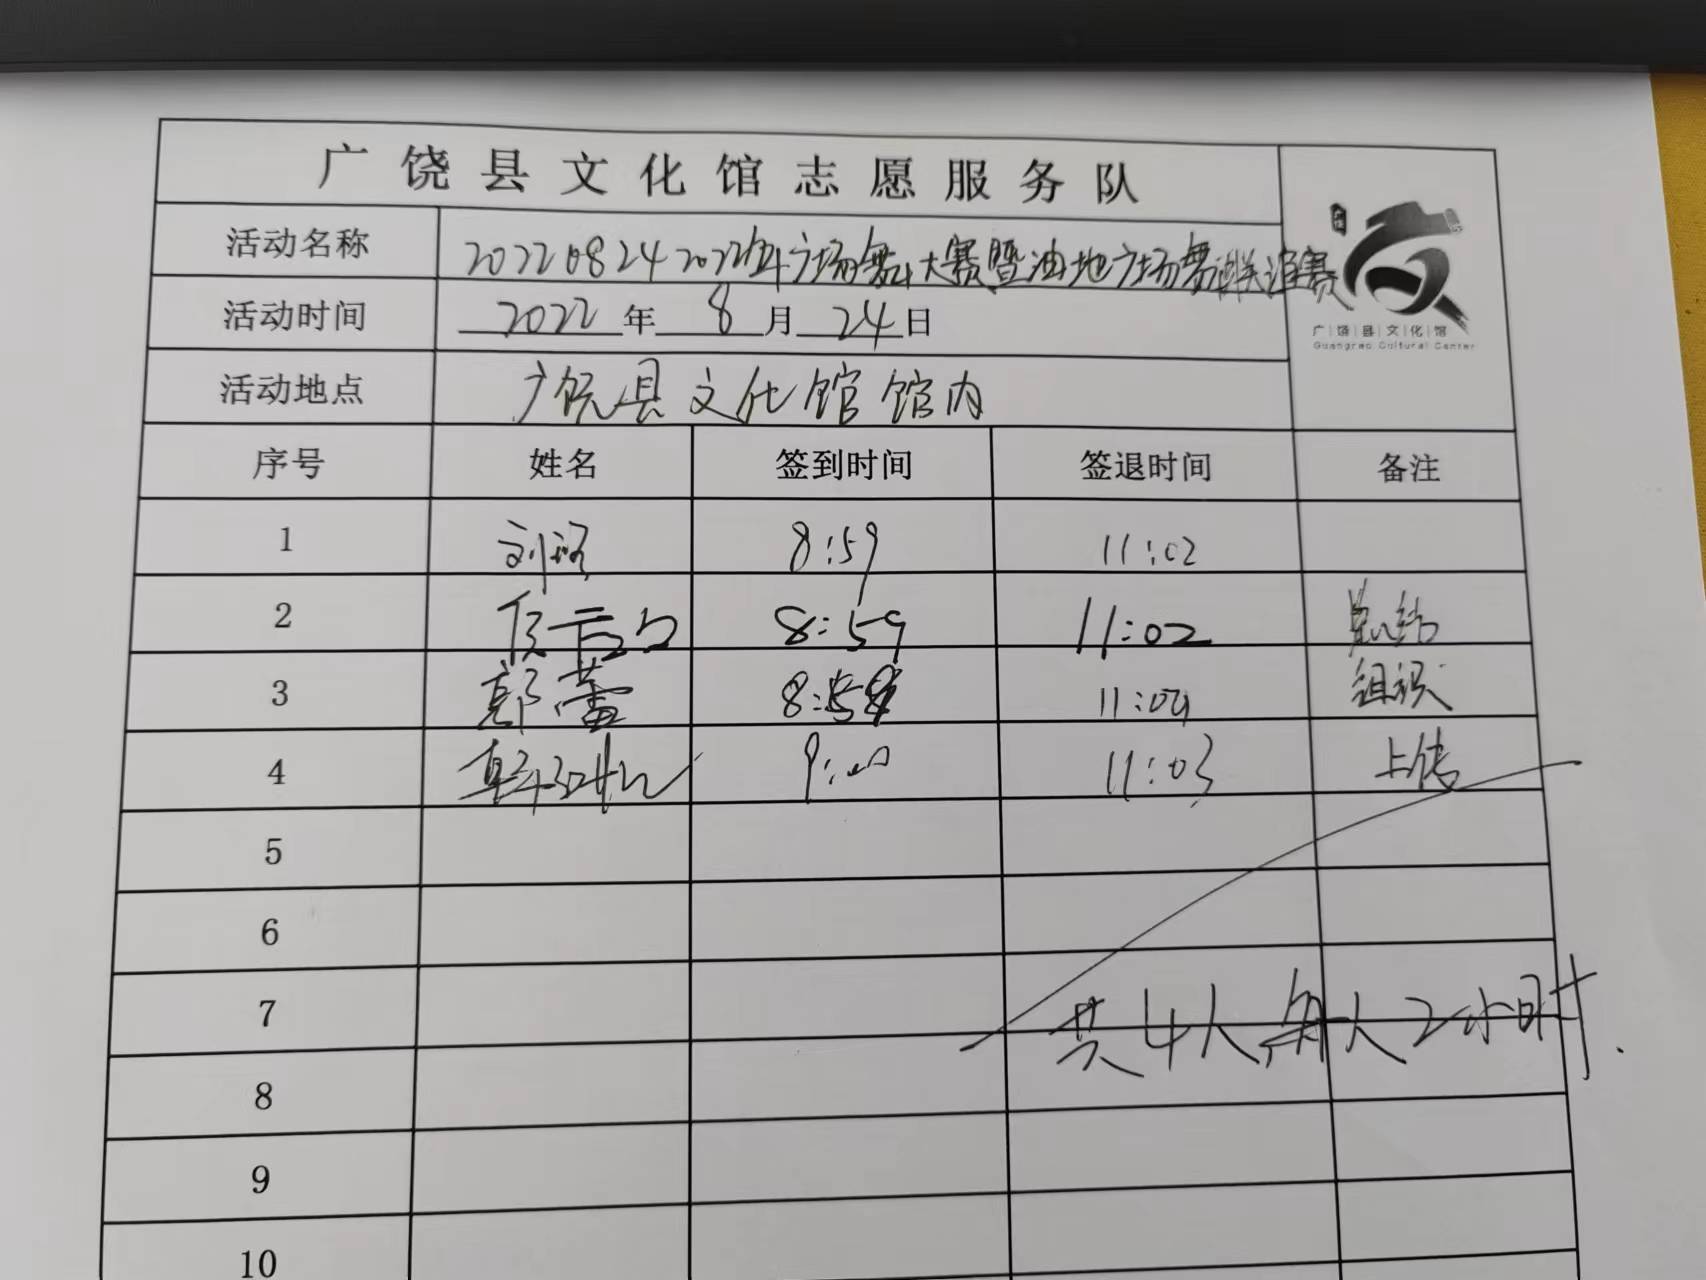 广饶县文化馆志愿服务队
活动名称 20220824 2022年广场舞大赛暨油地广场舞联谊赛
广饶县文化馆
Guangrao Cultural Center
活动时间 2022年8月24日
活动地点 广饶县文化馆馆内
序号 姓名 签到时间 签退时间 备注
1 8:59 11:02
2 8:59 11:02 总结
3 郭蕾 11:04 组织
4 9:00 11:03 上传
5
6
7
共4人,每人2小时.
8
9
10